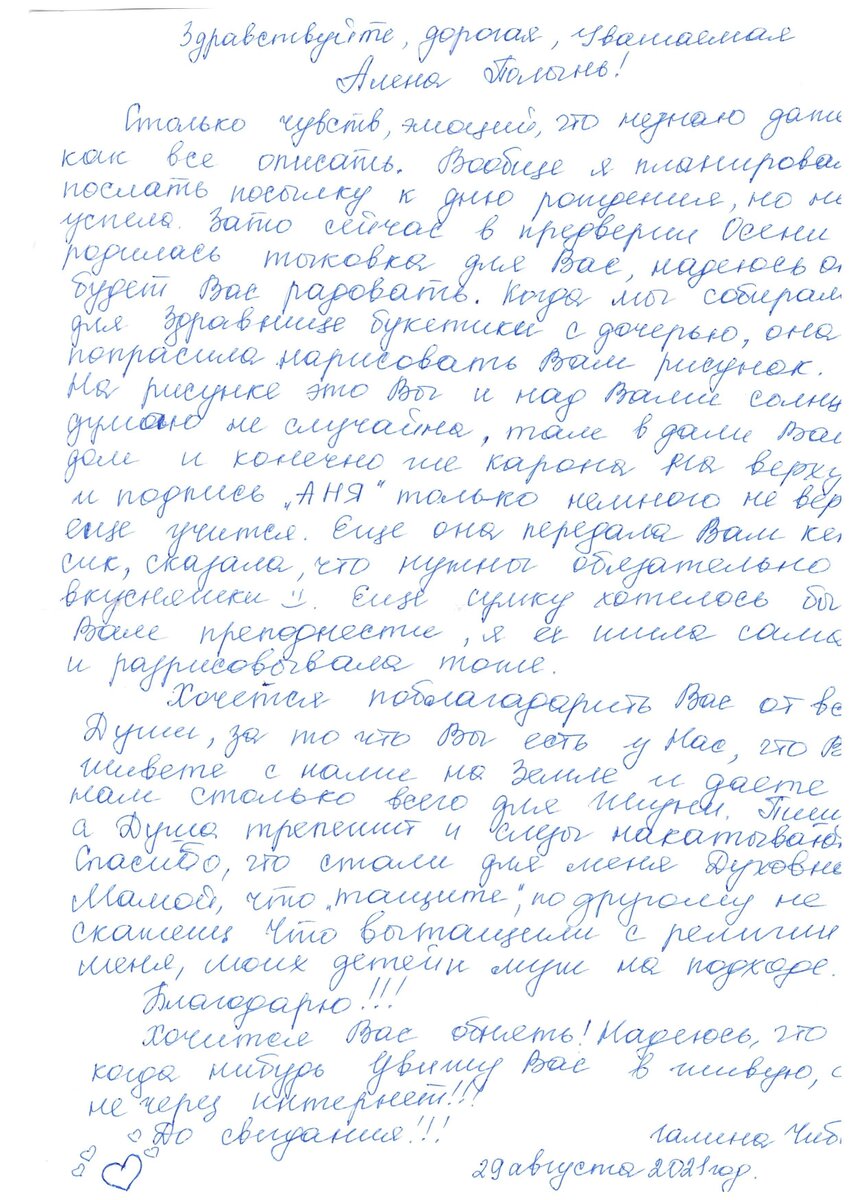 Здравствуйте, дорогая, Уважаемая
Алена Полынь!
Столько чувств, эмоций, что незнаю даже
как все описать. Вообще я планировал
послать посылку к дню рождения, но не
успела. Зато сейчас в предверии Осени
родилась тыковка для Вас, надеюсь о
будет Вас радовать. Когда мы собирал
для Здравнице букетики с дочерью, она
попрасила нарисовать Вам рисунок.
На рисунке это Вы и над Вами солнц
думаю не случайна, там в дали Ваш
дом и конечно же карона на верху
и подпись „АНЯ" только немного не вер
еще учится. Еще она передала Вам ке
сик, сказала, что нужны обязательно
вкусняшки :). Еще сумку хотелось бы
Вам преподнести, я ее шила сама
и разрисовывала тоже.
Хочется поблагадарить Вас от вс
Души, за то что Вы есть у Нас, что В
живете с нами на Земле и даете
нам столько всего для жизни. Пиш
а Душа трепещит и слезы накатывают
Спасибо, что стали для меня Духовно
Мамой, что „тащите", по другому не
скажешь Что вытащили с религии
меня, моих детей и муж на подходе.
Благодарю!!!
Хочится Вас обнять! Надеюсь, что
когда нибудь Увижу Вас в живую, а
не через интернет!!!
До свидания!!! Галина Чиб
29 августа 2021 год.